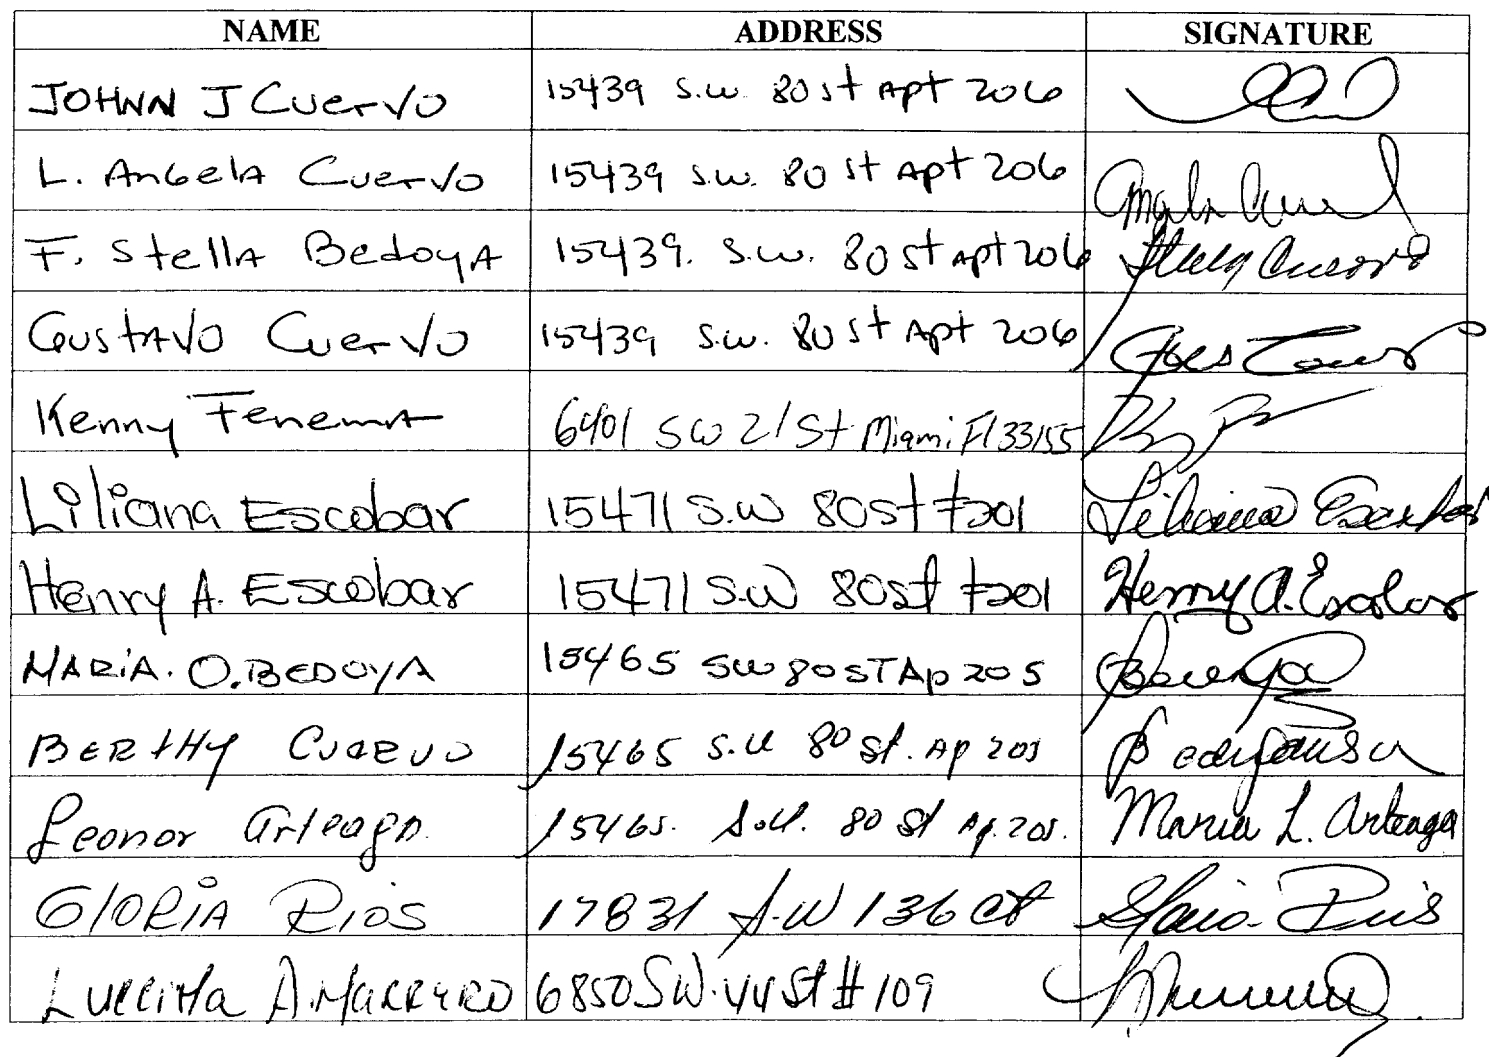 NAME ADDRESS SIGNATURE
JOHNN J Cuervo 15439 S.W. 80 st Apt 206
L. Angela Cuervo 15439 S.W. 80 st Apt 206 Angela Cuervo
F. Stella Bedoya 15439. S.W. 80 st Apt 206 Cuervo
Gustavo Cuervo 15439 S.W. 80 st Apt 206
Kenny Fenema 6401 SW 21 St Miami Fl 33155
Liliana Escobar 15471 S.W 80 st #201 Liliana Escobar
Henry A. Escobar 15471 S.W 80 st #201 Henry A. Escobar
MARIA. O. BEDOYA 15465 SW 80 ST Ap 205
BERTHY CUERVO 15465 S.W 80 st. Ap 205
Leonor Arteaga. 15465. S.W. 80 st Ap. 205. Maria L. Arteaga
GLORIA RIOS 17831 S.W 136 ct Gloria Rios
A. Marrero 6850 SW. 44 St # 109